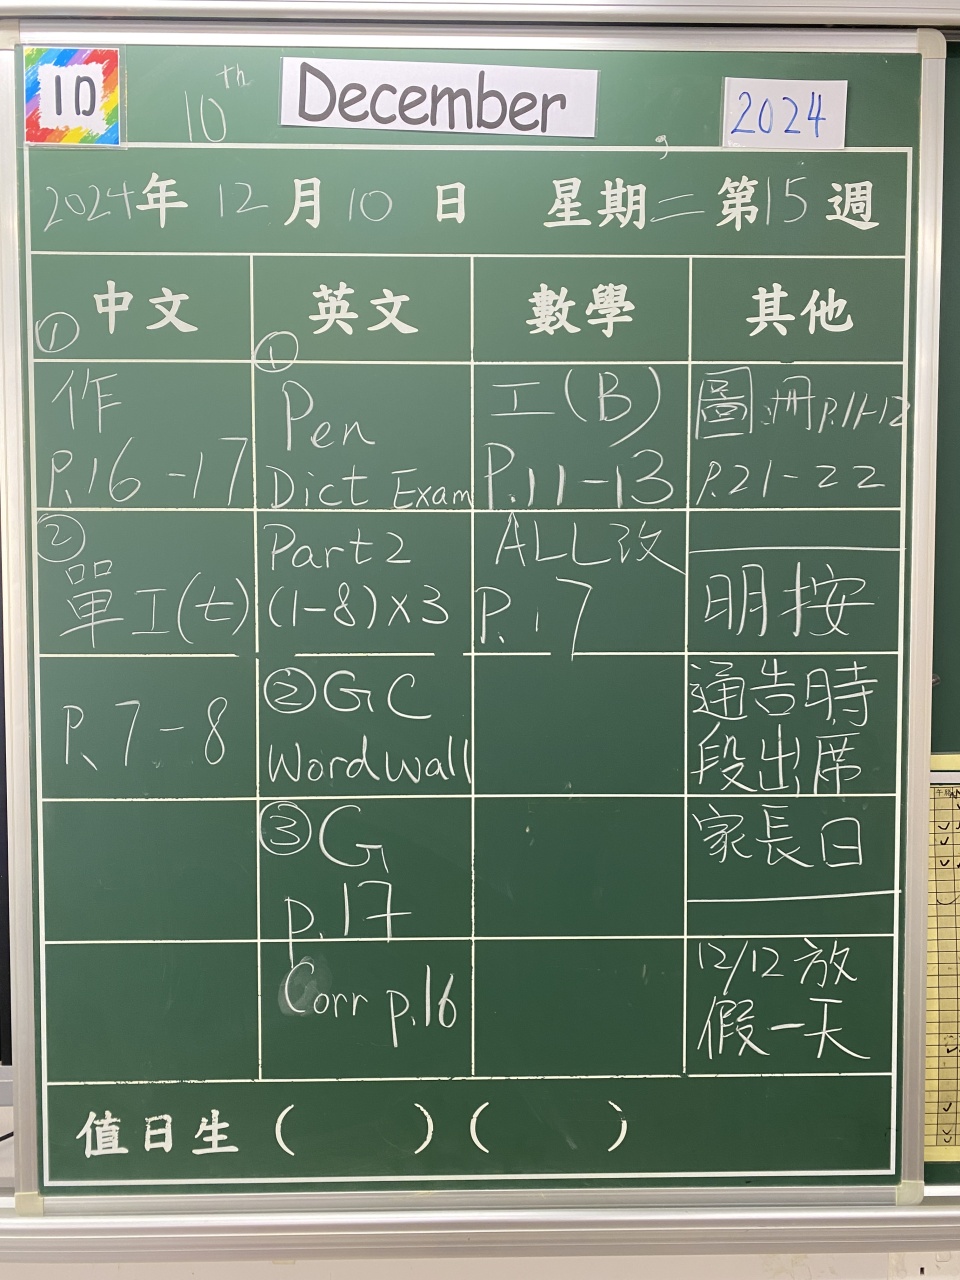 1D
10th December, 2024
2024年12月10日 星期二 第15週
中文 英文 數學 其他
①
作
P.16-17
②
單工(七)
P.7-8
①
Pen
Dict Exam
Part 2
(1-8)×3
② GC
Wordwall
③ G
p.17
Corr p.16
工(B)
P.11-13
ALL改
P.17
圖冊P.11-12
P.21-22
明按
通告時
段出席
家長日
12/12放
假一天
值日生( )( )